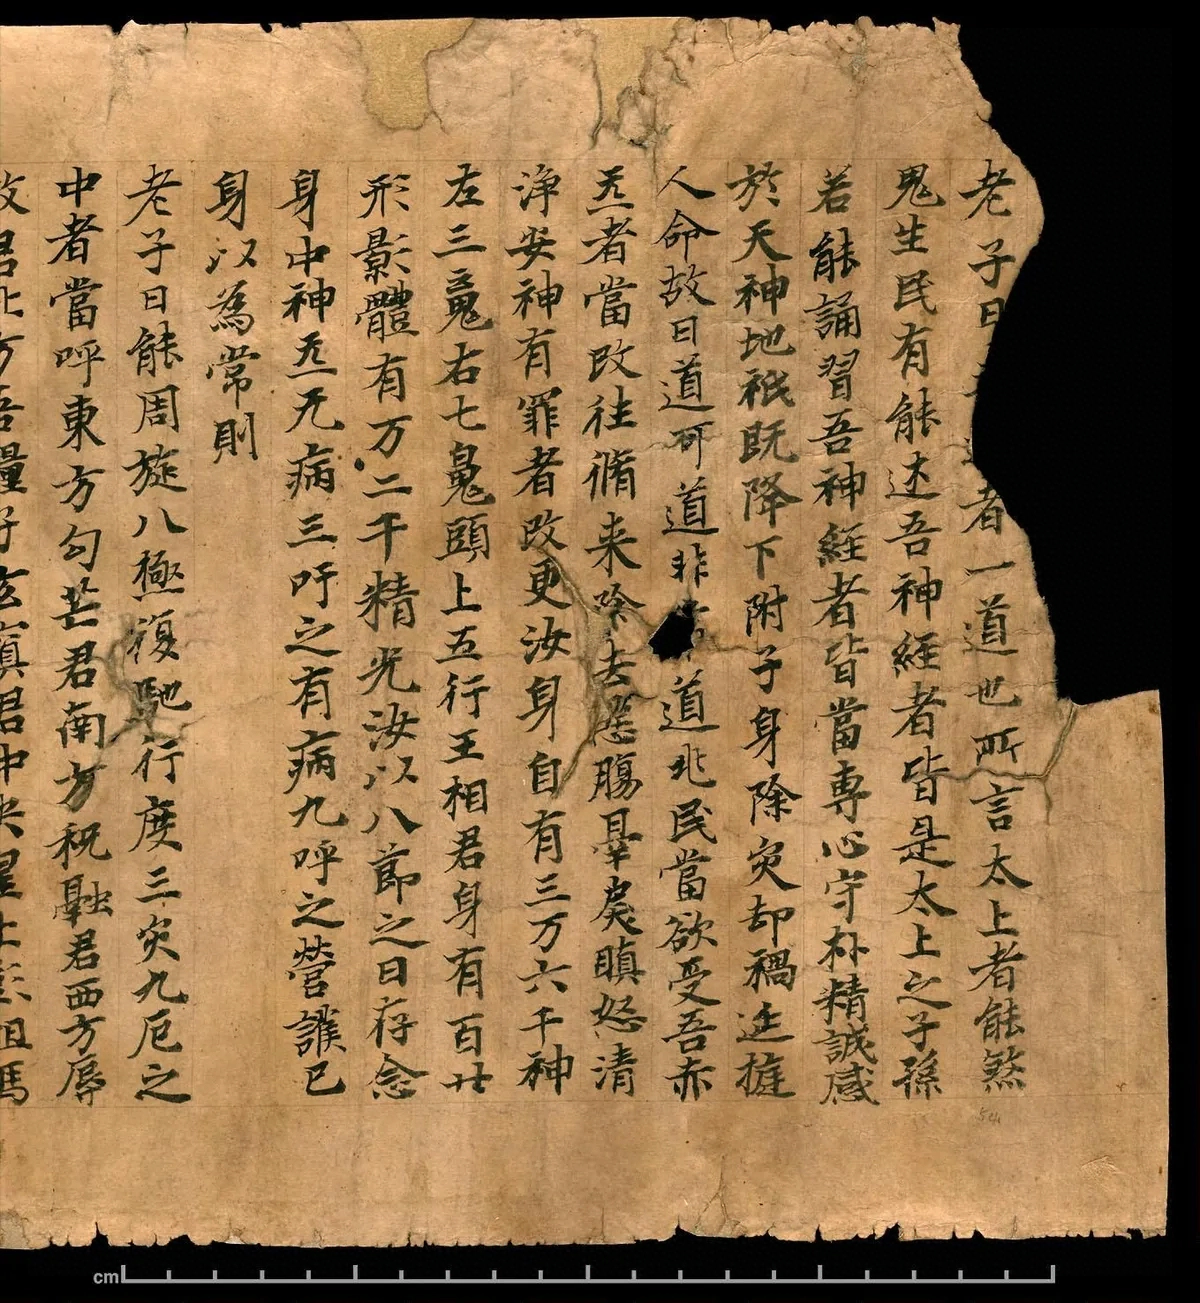 老子曰者一道也所言太上者能煞
鬼生民有能述吾神經者皆是太上之子孫
若能誦習吾神經者皆當專心守朴精誠感
於天神地祇既降下附子身除灾却禍延
人命故曰道可道非道兆民當欲受吾赤
者當改往脩来除去惡腸瞋怒清
浄安神有罪者改更汝身自有三万六千神
左三䰟右七鬼頭上五行王相君身有百廿
形影體有万二千精光汝以八節之日存念
身中神无病三呼之有病九呼之營護已
身以為常則
老子曰能周旋八極復馳行度三灾九厄之
中者當呼東方勾芒君南方祝融君西方辱